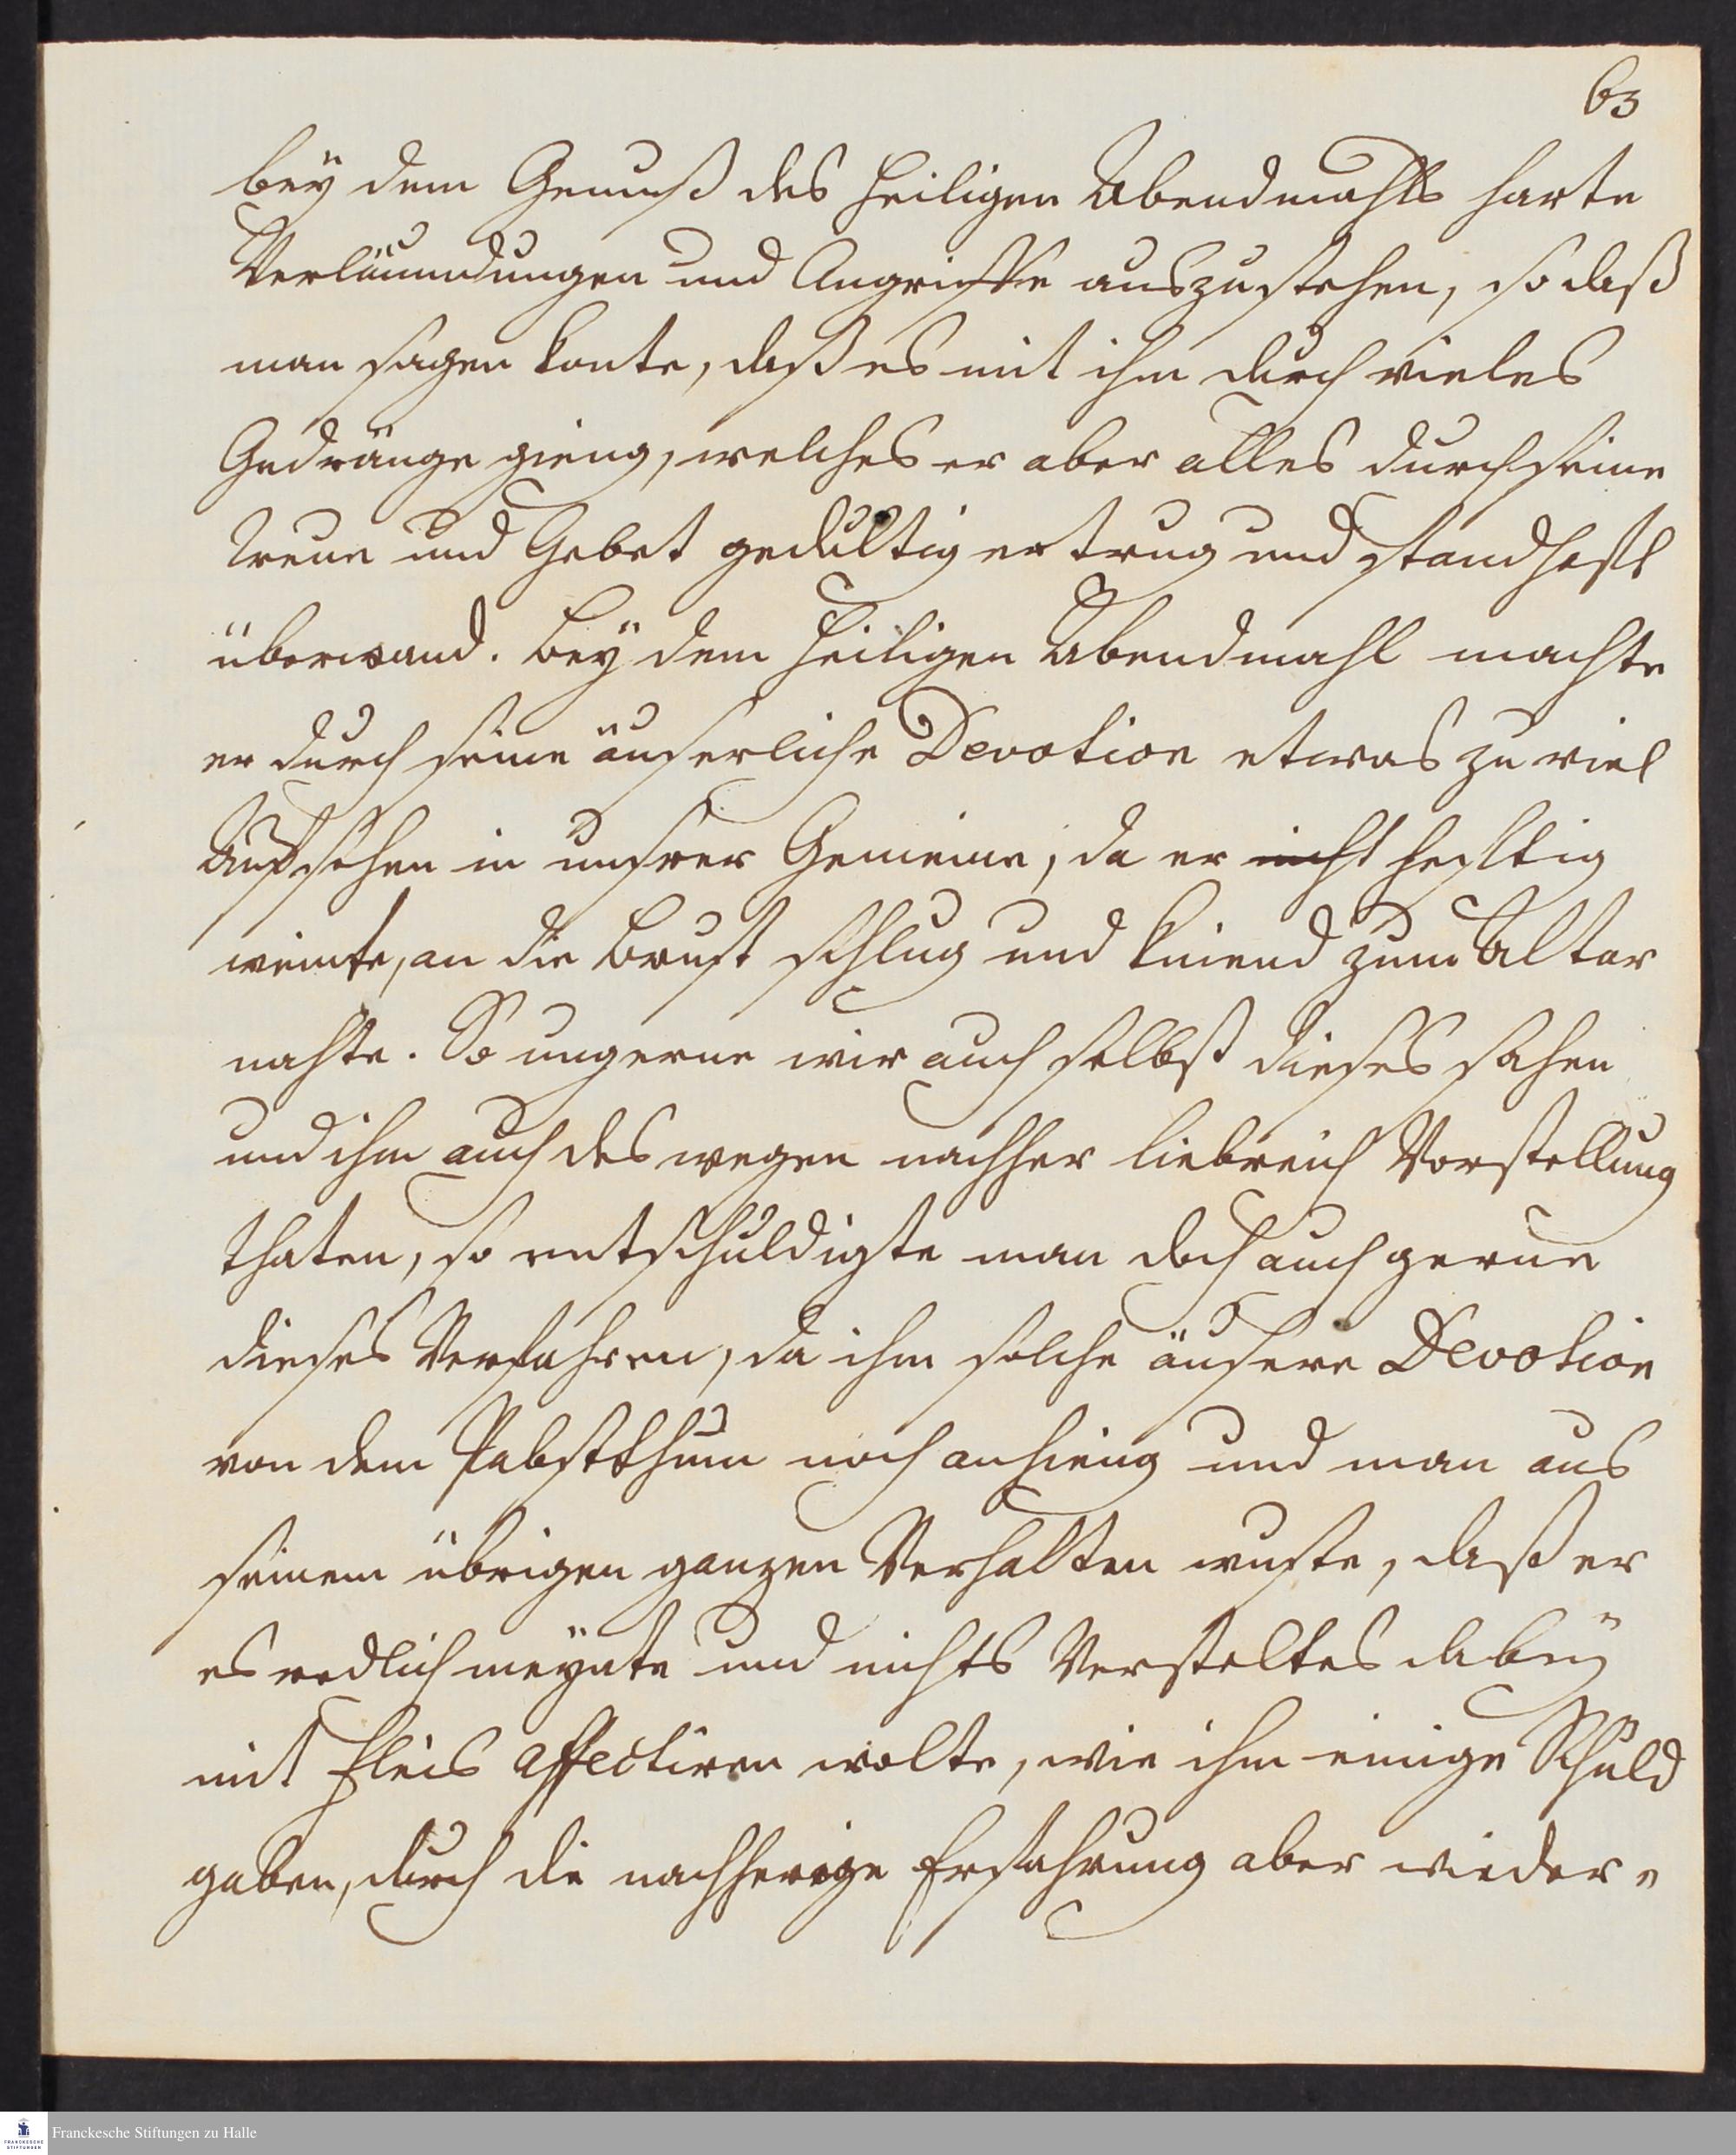 63
bey dem Genuß des heiligen Abendmahls harte
Verläumdungen und Angriffe auszustehen, so daß
man sagen konte, daß es mit ihm durch vieles
Gedränge gieng, welches er aber alles durch seine
Treue und Gebet gedultig ertrug und standhaft
überwand. Bey dem heiligen Abendmahl machte
er durch seine äuserliche Devotion etwas zu viel
Aufsehen in unsrer Gemeine, da er nicht heftig
weinte, an die Brust schlug und kniend zum Altar
nahte. So ungerne wir auch selbst dieses sahen
und ihm auch deswegen nachher liebreich Vorstellung
thaten, so entschuldigte man doch auch gerne
dieses Verfahren, da ihm solche äusere Devotion
von dem Pabstthum noch anhieng und man aus
seinem übrigen ganzen Verhalten wuste, daß er
es redlich meynte und nichts Versteltes dabey
mit Fleis affectiren wolte, wie ihm einige Schuld
gaben, durch die nachherige Erfahrung aber wieder=
Franckesche Stiftungen zu Halle